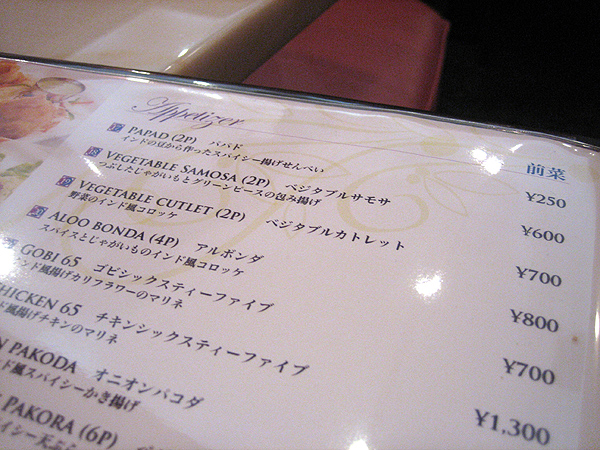 Appetizer 前菜
PAPAD (2P) パパド ¥250
インドの豆から作ったスパイシー揚げせんべい
VEGETABLE SAMOSA (2P) ベジタブルサモサ ¥600
つぶしたじゃがいもとグリーンピースの包み揚げ
VEGETABLE CUTLET (2P) ベジタブルカトレット ¥700
野菜のインド風コロッケ
ALOO BONDA (4P) アルボンダ ¥800
スパイスとじゃがいものインド風コロッケ
GOBI 65 ゴビシックスティーファイブ ¥700
インド風揚げカリフラワーのマリネ
CHICKEN 65 チキンシックスティーファイブ ¥1,300
ド風揚げチキンのマリネ
N PAKODA オニオンパコダ
ド風スパイシーかき揚げ
PAKORA (6P)
イシー天ぷら